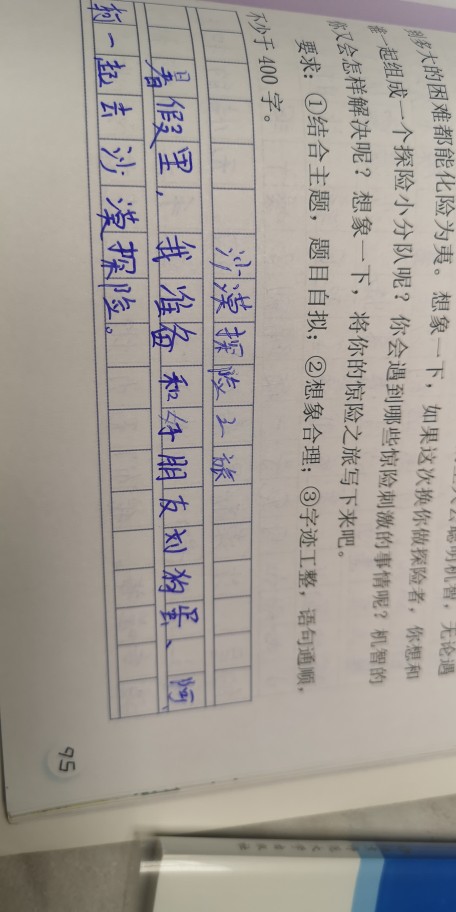 多大的困难都能化险为夷。想象一下，如果这次换你做探险者，你想和
谁一起组成一个探险小分队呢？你会遇到哪些惊险刺激的事情呢？机智的
你又会怎样解决呢？想象一下，将你的惊险之旅写下来吧。
要求：①结合主题，题目自拟；②想象合理；③字迹工整，语句通顺，
不少于400字。
沙漠探险之旅
暑假里，我准备和好朋友刘狗蛋、阿
一起去沙漠探险。
95